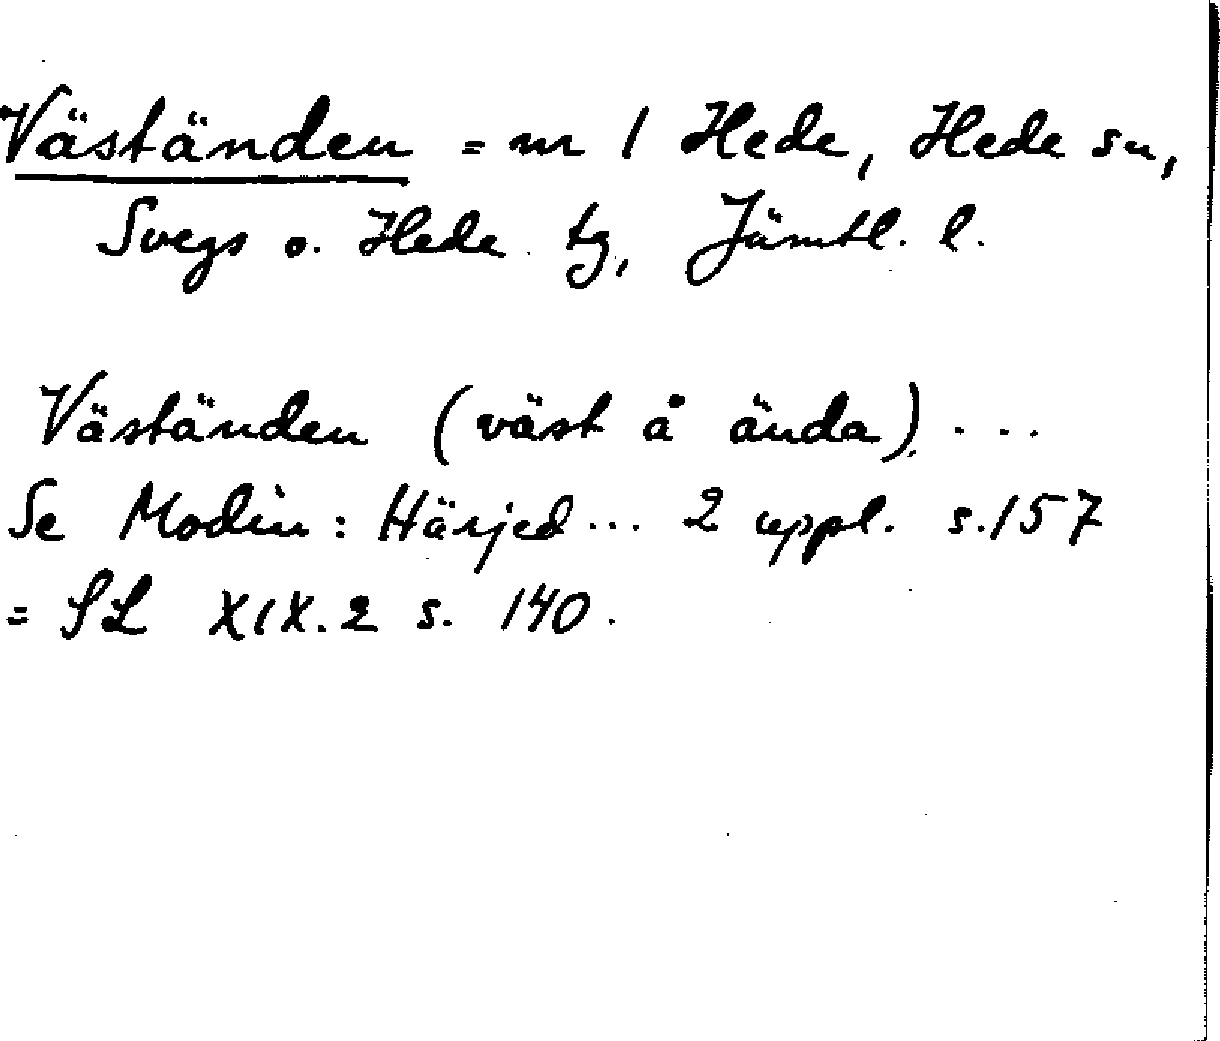 Väständen = m 1 Hede, Hede sn,
Svegs o. Hede tg, Jämtl. l.
Väständen (väst å ända) ...
Se Modin: Härjed... 2 uppl. s. 157
= SL XIX.2 s. 140.